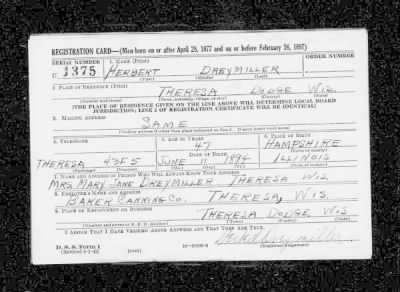 REGISTRATION CARD—(Men born on or after April 28, 1877 and on or before February 16, 1897)
SERIAL NUMBER 1. NAME (Print) ORDER NUMBER
U 1375 HERBERT DREYMILLER
(First) (Middle) (Last)
2. PLACE OF RESIDENCE (Print)
THERESA DODGE WIS.
(Number and street) (Town, township, village, or city) (County) (State)
[THE PLACE OF RESIDENCE GIVEN ON THE LINE ABOVE WILL DETERMINE LOCAL BOARD
JURISDICTION; LINE 2 OF REGISTRATION CERTIFICATE WILL BE IDENTICAL]
3. MAILING ADDRESS
SAME
[Mailing address if other than place indicated on line 2. If same insert word same]
4. TELEPHONE 5. AGE IN YEARS 6. PLACE OF BIRTH
47 HAMPSHIRE
DATE OF BIRTH (Town or county)
THERESA 40F5 JUNE 11 1894 ILLINOIS
(Exchange) (Number) (Mo.) (Day) (Yr.) (State or country)
7. NAME AND ADDRESS OF PERSON WHO WILL ALWAYS KNOW YOUR ADDRESS
MRS. MARY JANE DREYMILLER THERESA WIS.
8. EMPLOYER'S NAME AND ADDRESS
BAKER CANNING CO. THERESA, WIS.
9. PLACE OF EMPLOYMENT OR BUSINESS
THERESA DODGE WIS
(Number and street or R. F. D. number) (Town) (County) (State)
I AFFIRM THAT I HAVE VERIFIED ABOVE ANSWERS AND THAT THEY ARE TRUE.
D. S. S. Form 1
(Revised 4-1-42) (over)